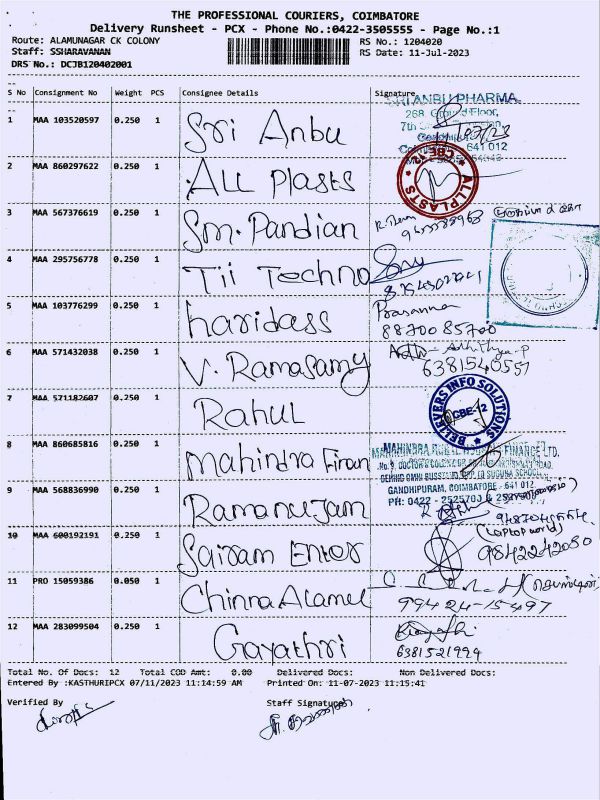 THE PROFESSIONAL COURIERS, COIMBATORE
Delivery Runsheet - PCX - Phone No.:0422-3505555 - Page No.:1
Route: ALAMUNAGAR CK COLONY
RS No.: 1204020
Staff: SSHARAVANAN
RS Date: 11-Jul-2023
DRS No.: DCJB120402001
S No Consignment No Weight PCS Consignee Details Signature
1 MAA 103520597 0.250 1 Sri Anbu
SRI ANBU PHARMA
268 Ground Floor,
7th
641 012
2 MAA 860297622 0.250 1 ALL Plasts
ALLPLASTS CBE-12
3 MAA 567376619 0.250 1 Sm. Pandian
4 MAA 295756778 0.250 1 Tii Techno
5 MAA 103776299 0.250 1 haridass
Prasanna
88700 85700
6 MAA 571432038 0.250 1 V. Ramasamy
Adhithya.P
6381540557
7 MAA 571182607 0.250 1 Rahul
BELIEVERS INFO SOLUTIONS
CBE-12
8 MAA 860685816 1 Mahindra Finan
MAHINDRA RURAL HOUSING FINANCE LTD.
GANDHIPURAM, COIMBATORE - 641 012
PH: 0422 - 2525700 &
9 MAA 568836990 0.250 1 Ramanujam
10 MAA 600192191 0.250 1 Sairam Enter
(Laptop world)
9842242030
11 PRO 15059386 0.050 1 Chinna Alamel
99424-15497
12 MAA 283099504 0.250 1 Gayathri
6381521994
Total No. Of Docs: 12 Total COD Amt: 0.00 Delivered Docs: Non Delivered Docs:
Entered By :KASTHURIPCX 07/11/2023 11:14:59 AM Printed On: 11-07-2023 11:15:41
Verified By Staff Signature